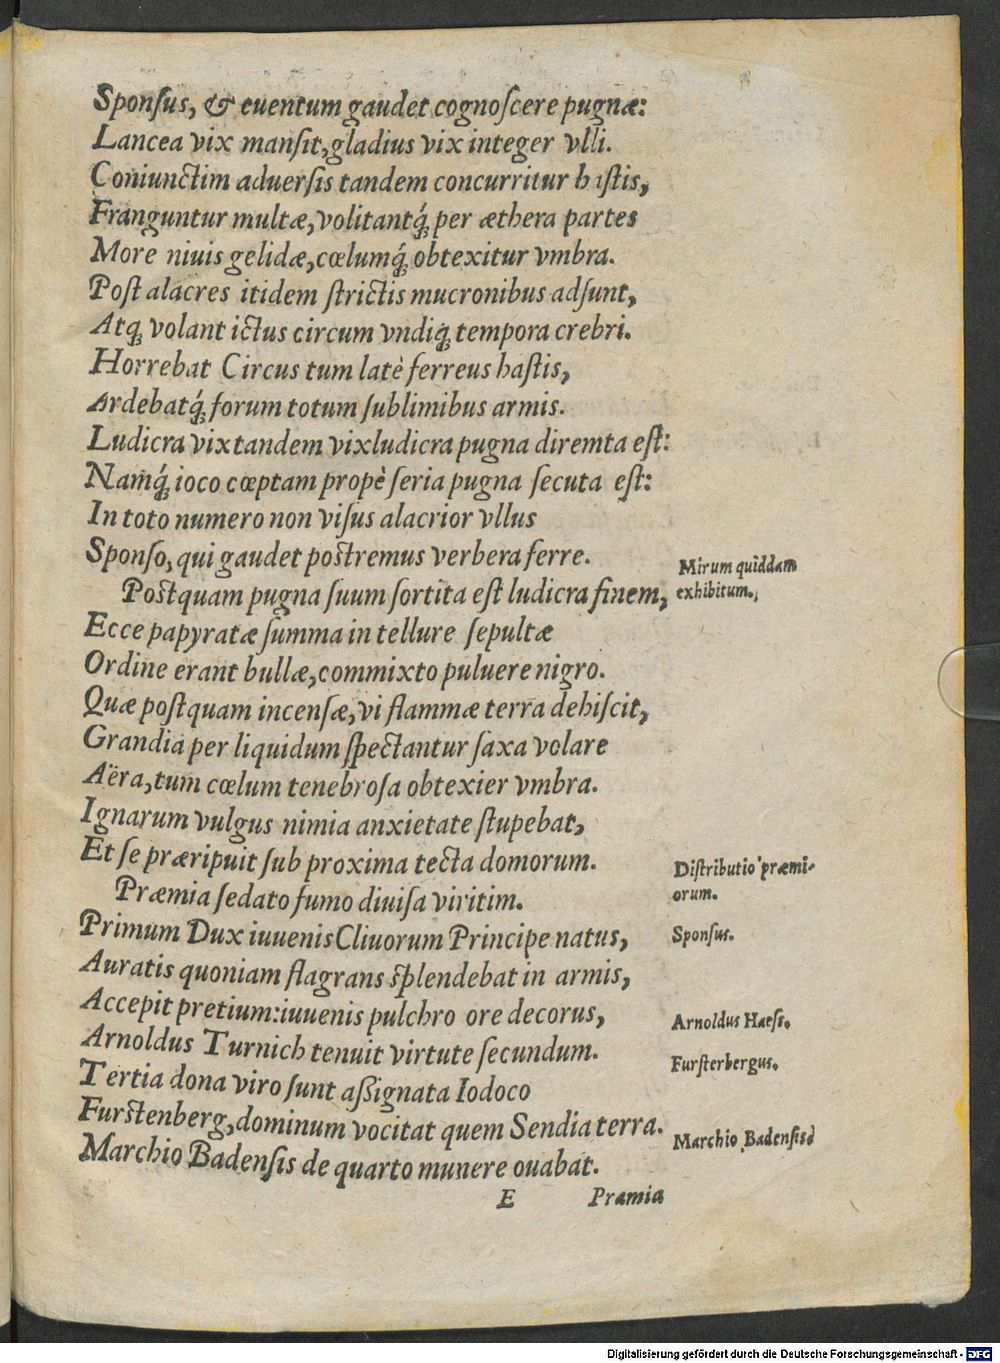 Sponſus, & euentum gaudet cognoſcere pugnæ:
Lancea vix manſit, gladius vix integer vlli.
Coniunctim aduerſis tandem concurritur haſtis,
Franguntur multæ, volitantq́; per æthera partes
More niuis gelidæ, cœlumq́; obtexitur vmbra.
Poſt alacres itidem ſtrictis mucronibus adſunt,
Atq; volant ictus circum vndiq; tempora crebri.
Horrebat Circus tum latè ferreus haſtis,
Ardebatq́; forum totum ſublimibus armis.
Ludicra vix tandem vix ludicra pugna diremta eſt:
Namq́; ioco cœptam propè ſeria pugna ſecuta eſt:
In toto numero non viſus alacrior vllus
Sponſo, qui gaudet poſtremus verbera ferre.
Mirum quiddam
exhibitum.
Poſtquam pugna ſuum ſortita eſt ludicra finem,
Ecce papyratæ ſumma in tellure ſepultæ
Ordine erant bullæ, commixto puluere nigro.
Quæ poſtquam incenſæ, vi flammæ terra dehiſcit,
Grandia per liquidum ſpectantur ſaxa volare
Aëra, tum cœlum tenebroſa obtexier vmbra.
Ignarum vulgus nimia anxietate ſtupebat,
Et ſe præripuit ſub proxima tecta domorum.
Diſtributio præmi-
orum.
Præmia ſedato fumo diuiſa viritim.
Primum Dux iuuenis Cliuorum Principe natus,
Sponſus.
Auratis quoniam flagrans ſplendebat in armis,
Accepit pretium: iuuenis pulchro ore decorus,
Arnoldus Haeſt.
Arnoldus Turnich tenuit virtute ſecundum.
Furſterbergus.
Tertia dona viro ſunt aßignata Iodoco
Furſtenberg, dominum vocitat quem Sendia terra.
Marchio Badenſis
Marchio Badenſis de quarto munere ouabat.
E Præmia
Digitalisierung gefördert durch die Deutsche Forschungsgemeinschaft - DFG